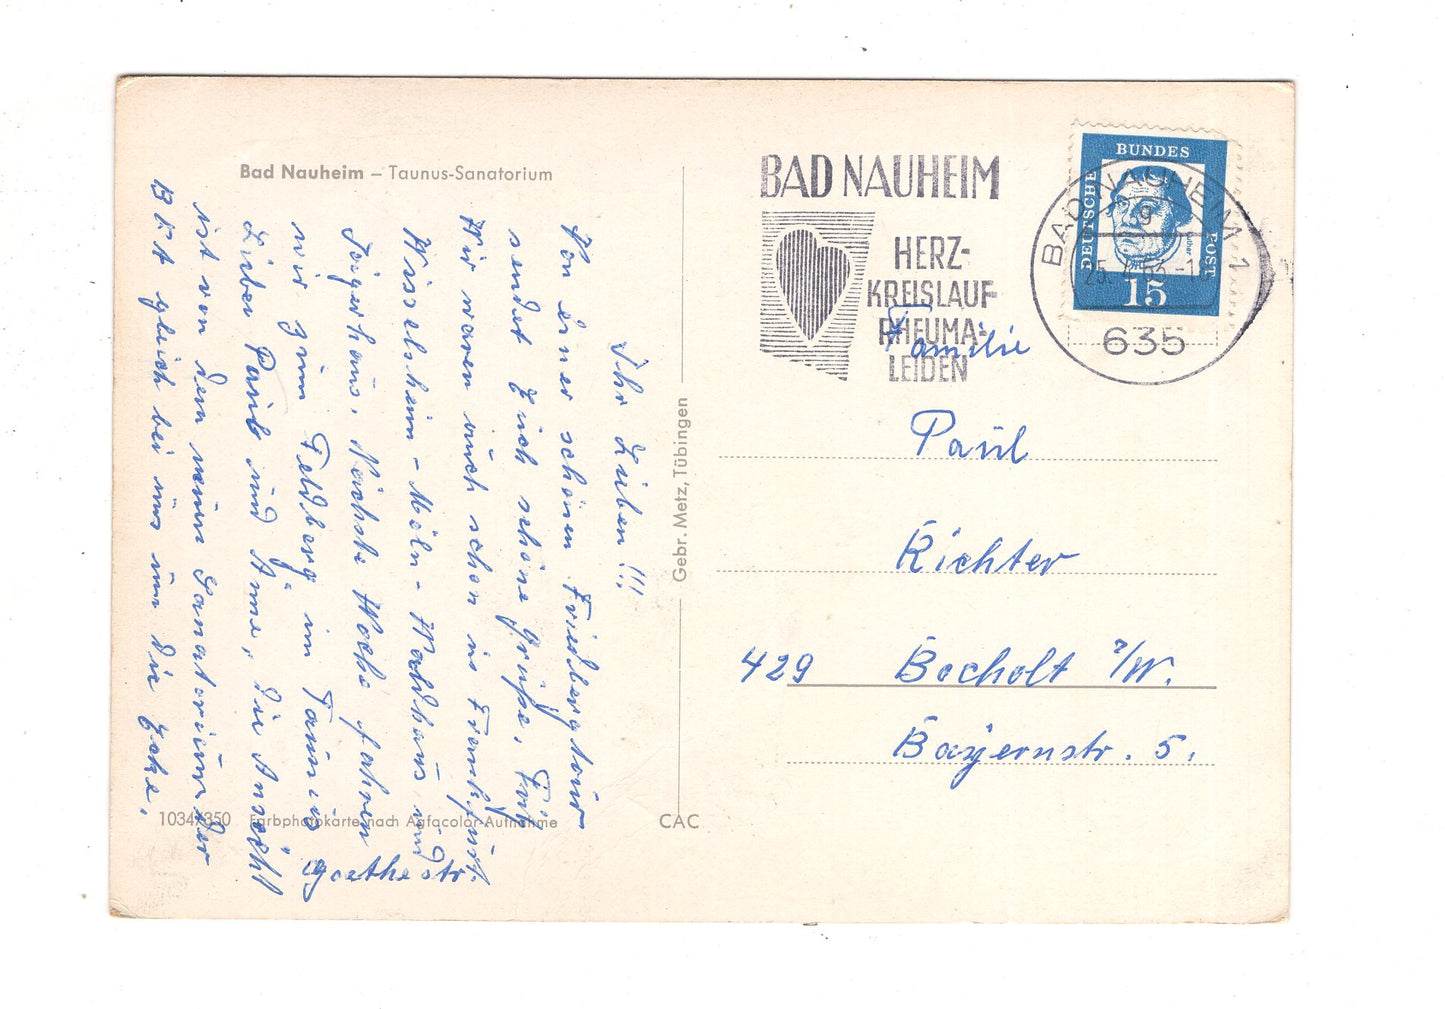 Bad Nauheim – Taunus-Sanatorium
Ihr Lieben !!!
Von einer schönen Friedbergtour
sendet Euch schöne Grüße, Fritz
Wir waren auch schon in Frankfurt.
Wisselsheim - Mörl - Waldhaus und
Jägerhaus. Nächste Woche fahren
wir zum Feldberg im Taunus
Lieber Paul und Änne, die Ansicht
ist von dem neuen Sanatorium der
BfA gleich bei uns um die Ecke.
Goethestr.
1034/350 Farbphotokarte nach Agfacolor-Aufnahme
CAC
Gebr. Metz, Tübingen
BAD NAUHEIM
HERZ-
KREISLAUF-
RHEUMA-
LEIDEN
DEUTSCHE BUNDES POST
15
BAD NAUHEIM 1
g
635
Familie
Paul
Richter
429 Bocholt i/W.
Bayernstr. 5.